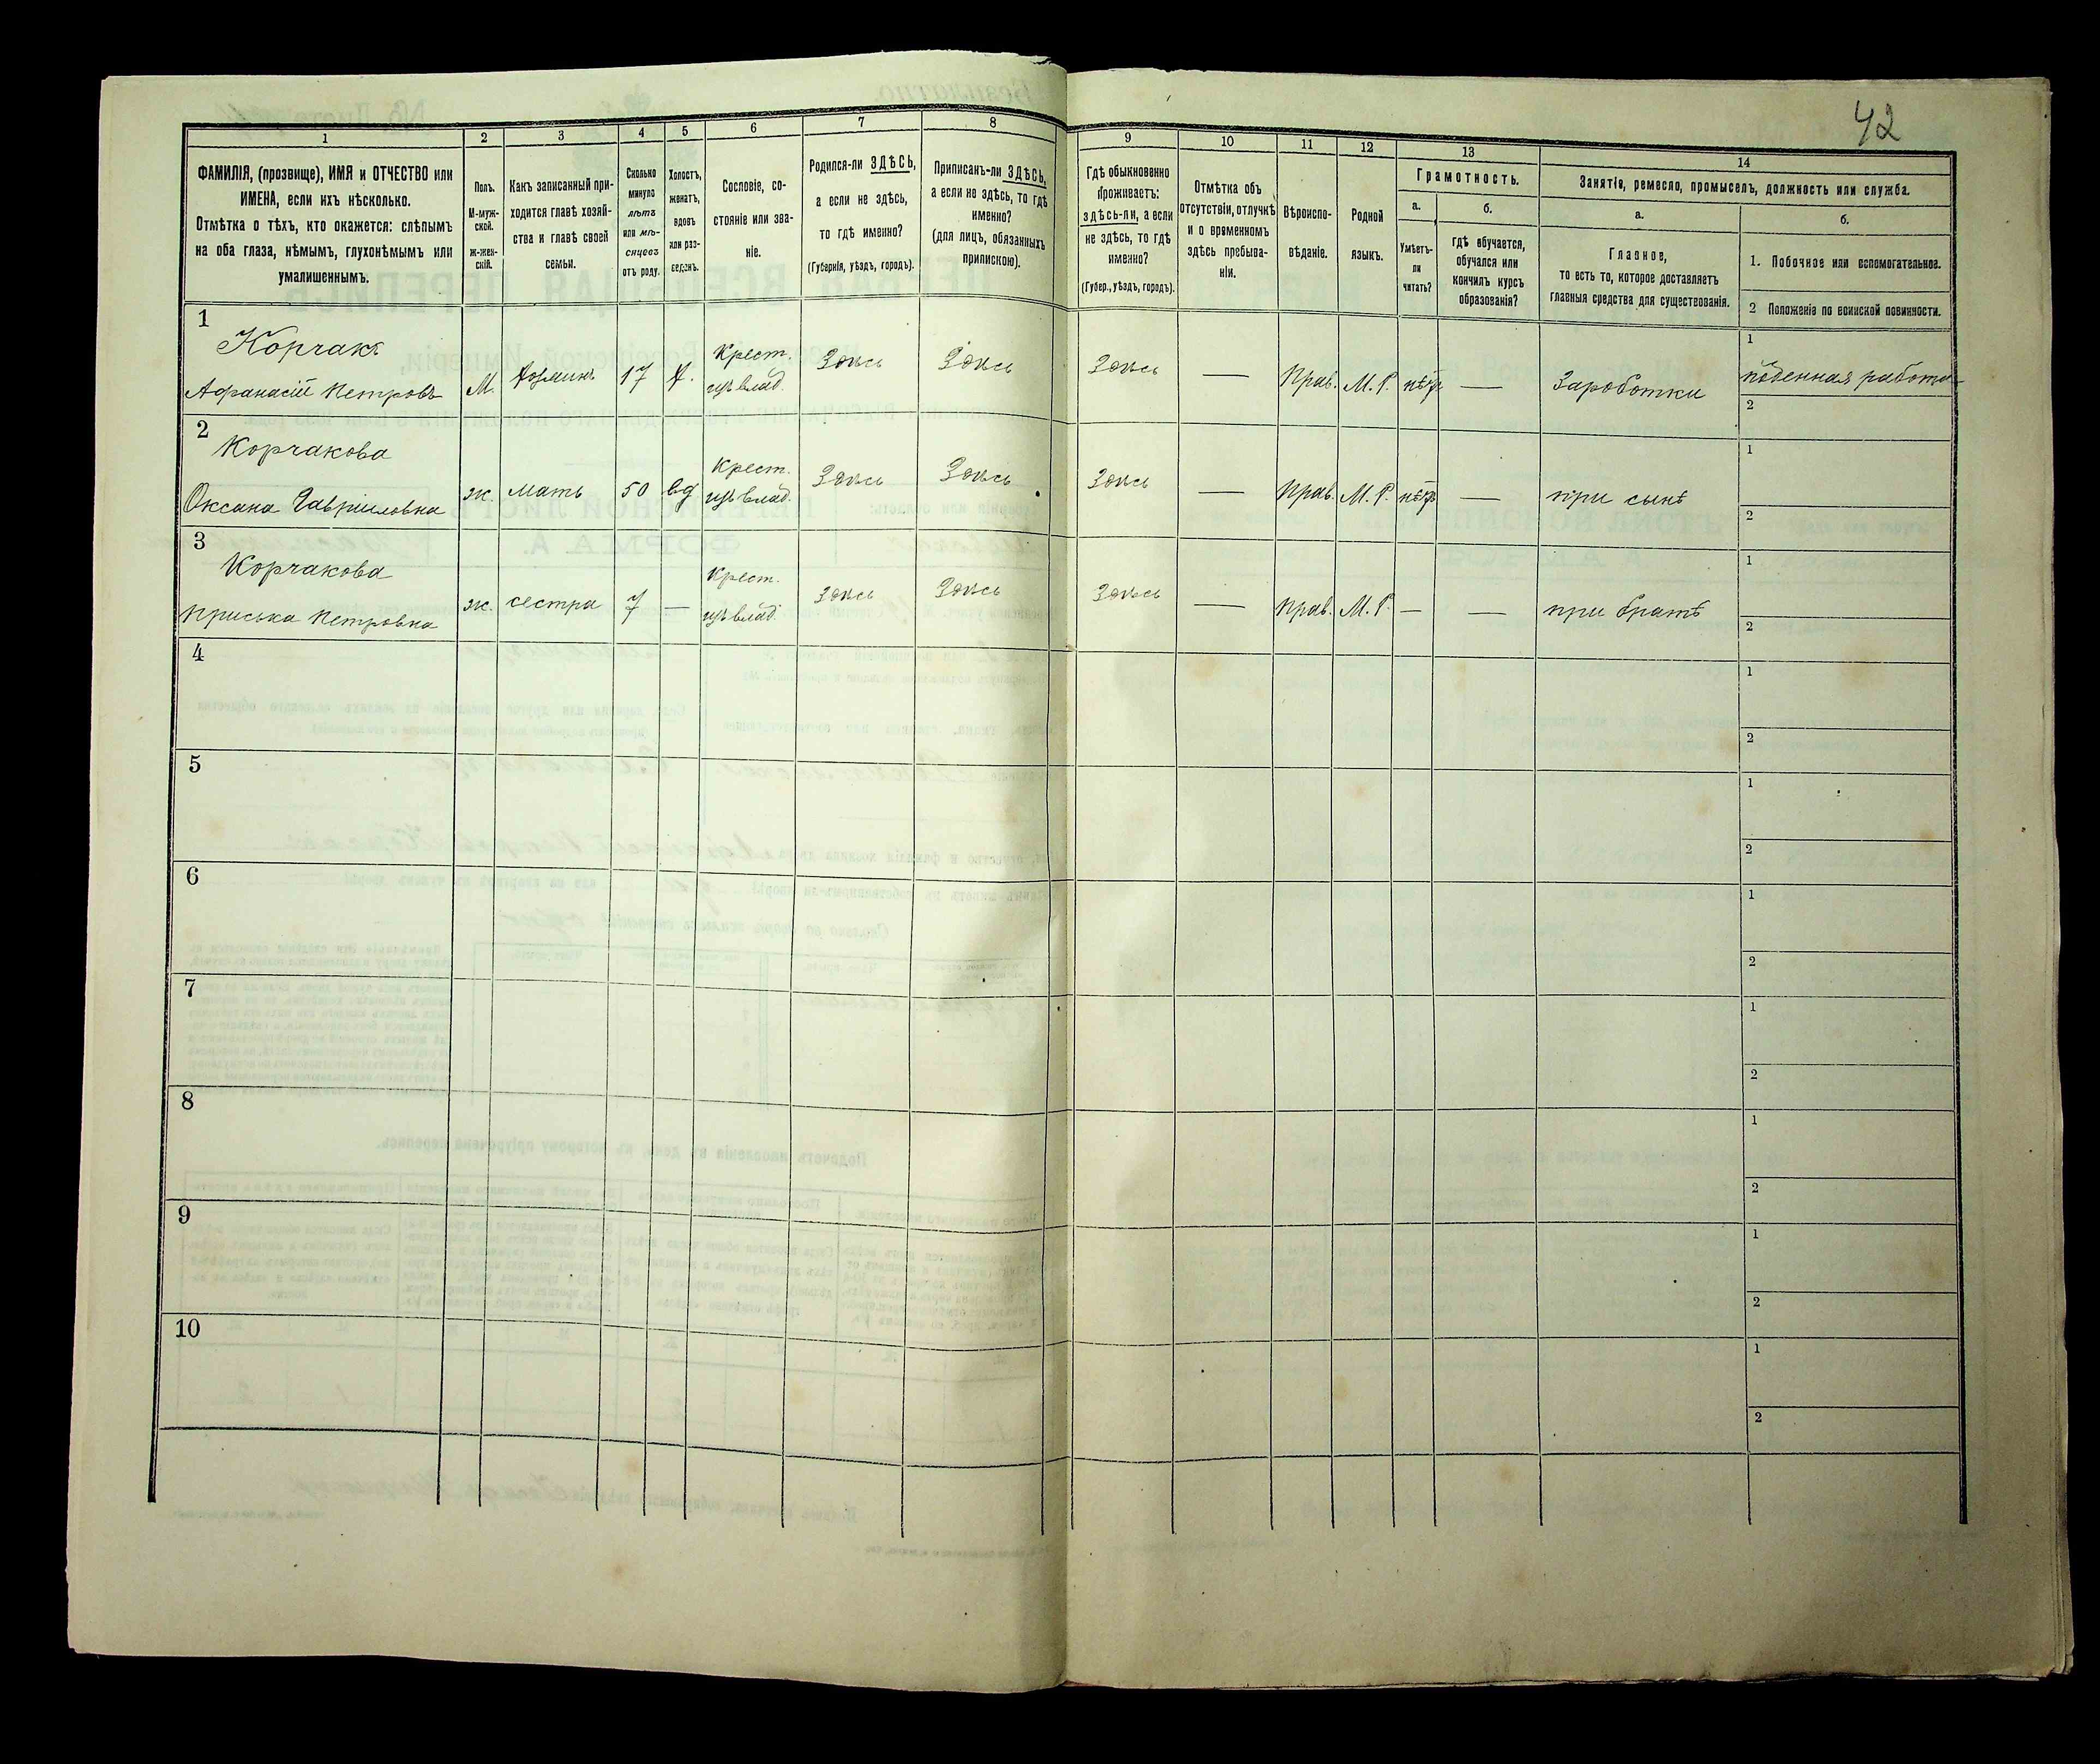 42
1
2
3
4
5
6
7
8
9
10
11
12
13
14
ФАМИЛІЯ, (прозвище), ИМЯ и ОТЧЕСТВО или
ИМЕНА, если ихъ нѣсколько.
Отмѣтка о тѣхъ, кто окажется: слѣпымъ
на оба глаза, нѣмымъ, глухонѣмымъ или
умалишеннымъ.
Полъ.
М-муж-
ской.
ж-жен-
скій.
Какъ записанный при-
ходится главѣ хозяй-
ства и главѣ своей
семьи.
Сколько
минуло
лѣтъ
или мѣ-
сяцевъ
отъ роду.
Холостъ,
женатъ,
вдовъ
или раз-
веденъ.
Сословіе, со-
стояніе или зва-
ніе.
Родился-ли ЗДѢСЬ,
а если не здѣсь,
то гдѣ именно?
(Губернія, уѣздъ, городъ).
Приписанъ-ли ЗДѢСЬ,
а если не здѣсь, то гдѣ
именно?
(для лицъ, обязанныхъ
припискою).
Гдѣ обыкновенно
проживаетъ:
здѣсь-ли, а если
не здѣсь, то гдѣ
именно?
(Губер., уѣздъ, городъ).
Отмѣтка объ
отсутствіи, отлучкѣ
и о временномъ
здѣсь пребыва-
ніи.
Вѣроиспо-
вѣданіе.
Родной
языкъ.
Грамотность.
а.
Умѣетъ-
ли
читать?
б.
гдѣ обучается,
обучался или
кончилъ курсъ
образованія?
Занятіе, ремесло, промыселъ, должность или служба.
а.
Главное,
то есть то, которое доставляетъ
главныя средства для существованія.
б.
1. Побочное или вспомогательное.
2 Положеніе по воинской повинности.
1
Корчакъ
Афанасій Петровъ
М.
хозяинъ
17
х.
Крест.
изъ влад.
Здѣсь
Здѣсь
Здѣсь
—
Прав.
М. Р.
—
Заработки
1
поденная работа
2
2
Корчакова
Оксана Гавриловна
ж.
мать
50
вд
Крест.
изъ влад.
Здѣсь
Здѣсь
Здѣсь
—
Прав.
М. Р.
—
при сынѣ
1
2
3
Корчакова
Приська Петровна
ж.
сестра
7
—
Крест.
изъ влад.
Здѣсь
Здѣсь
Здѣсь
—
Прав.
М. Р.
—
—
при братѣ
1
2
4
1
2
5
1
2
6
1
2
7
1
2
8
1
2
9
1
2
10
1
2